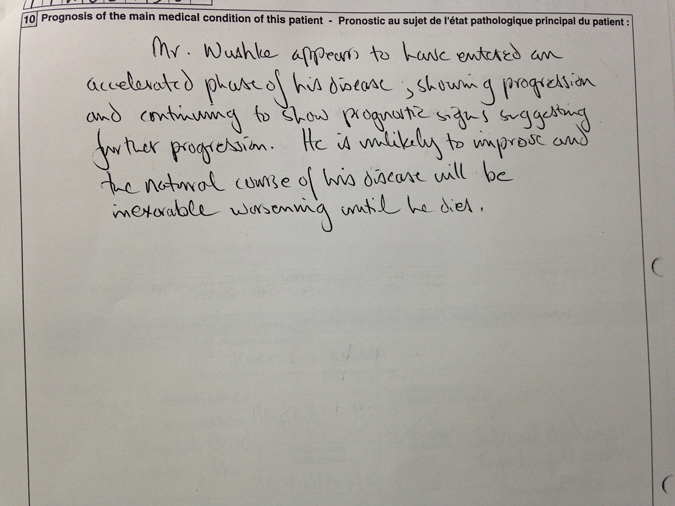 10 Prognosis of the main medical condition of this patient - Pronostic au sujet de l'état pathologique principal du patient :
Mr. Wushke appears to have entered an
accelerated phase of his disease, showing progression
and continuing to show prognostic signs suggesting
further progression. He is unlikely to improve and
the natural course of his disease will be
inexorable worsening until he dies.